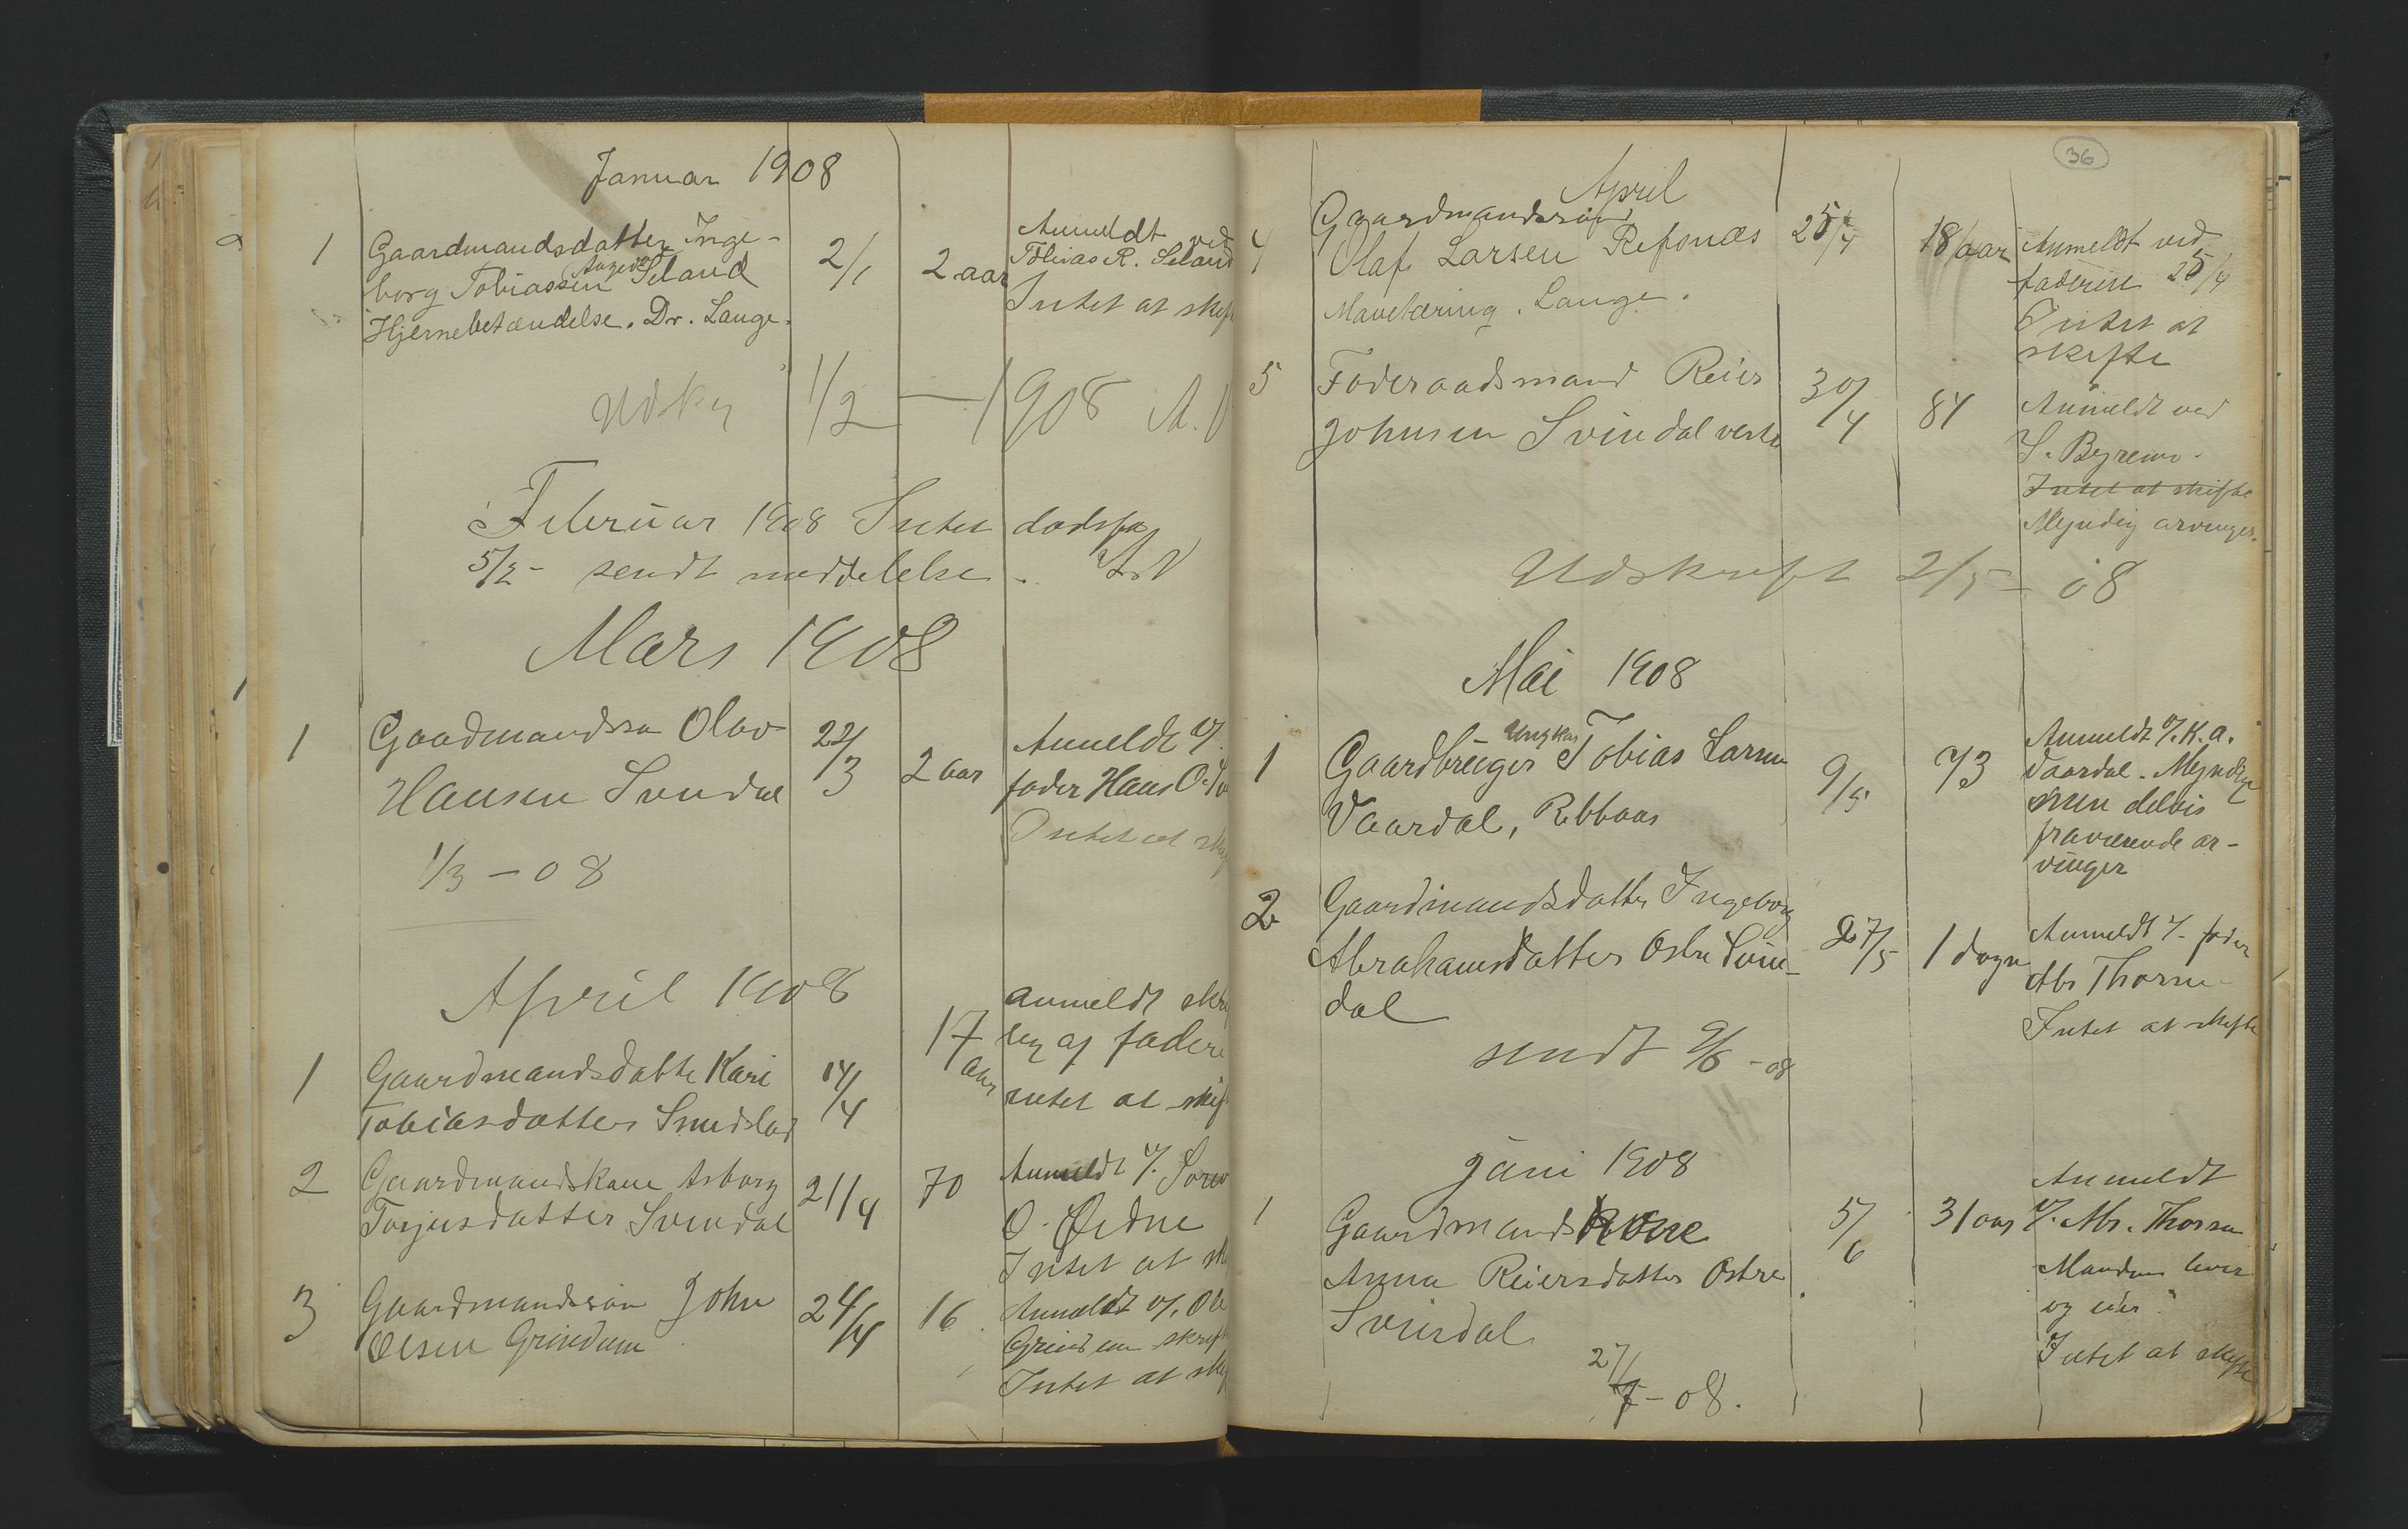 Januar 1908
1 Gaardmandsdatter Inge-
borg Tobiassen Seland 2/1 2 aar Anmeldt ved
Tobias R. Seland
Hjernebetændelse. Dr. Lange. Intet at
1/2 — 1908
Februar 1908 Intet dødsfa
5/2 - sendt meddelelse.
Mars 1908
1 Gaardmandssøn Olav 22/3 2 aar Anmeldt v/.
Hansen Svindal fader Hans O.
Intet at
1/3 - 08
April 1908
1 Gaardmandsdatte Kari 14/4 17 aar anmeldt
Tobiasdatter af fader
intet at
2 Gaardmandskone Asborg 21/4 70 Anmeldt v/.
Torjusdatter Svindal O. Øidne
Intet at
3 Gaardmandssøn John 24/4 16 Anmeldt v/.
Olsen Grindum Grindum
Intet at
36
April
4 Gaardmandssøn
Olaf Larsen Refsnæs 25/4 18 aar Anmeldt ved
faderen 25/4
Mavetæring. Lange. Intet at
skifte
5 Føderaadsmand Reier 30/4 84 Anmeldt ved
Johnsen Svindal vestre S. Byremo.
Intet at skifte
Myndig arvinger.
Udskrift 2/5 - 08
Mai 1908
1 Gaardbruger Ungkar Tobias Larsen 9/5 73 Anmeldt v/. K. A.
Vaardal, Ribbaas Vaardal. Myndige
men delvis
fraværende ar-
vinger
2 Gaardmandsdatter Ingeborg
Abrahamsdatter Østre Svin- 27/5 1 døgn Anmeldt v/- fader
dal Abr Thorsen
Intet at skifte
sendt 2/6 - 08
Juni 1908
1 Gaardmandskone 5/6 31 aar Anmeldt
v/. Abr. Thorsen
Anna Reiersdatter Østre Manden lever
Svindal og
Intet at skifte
27/7 - 08.